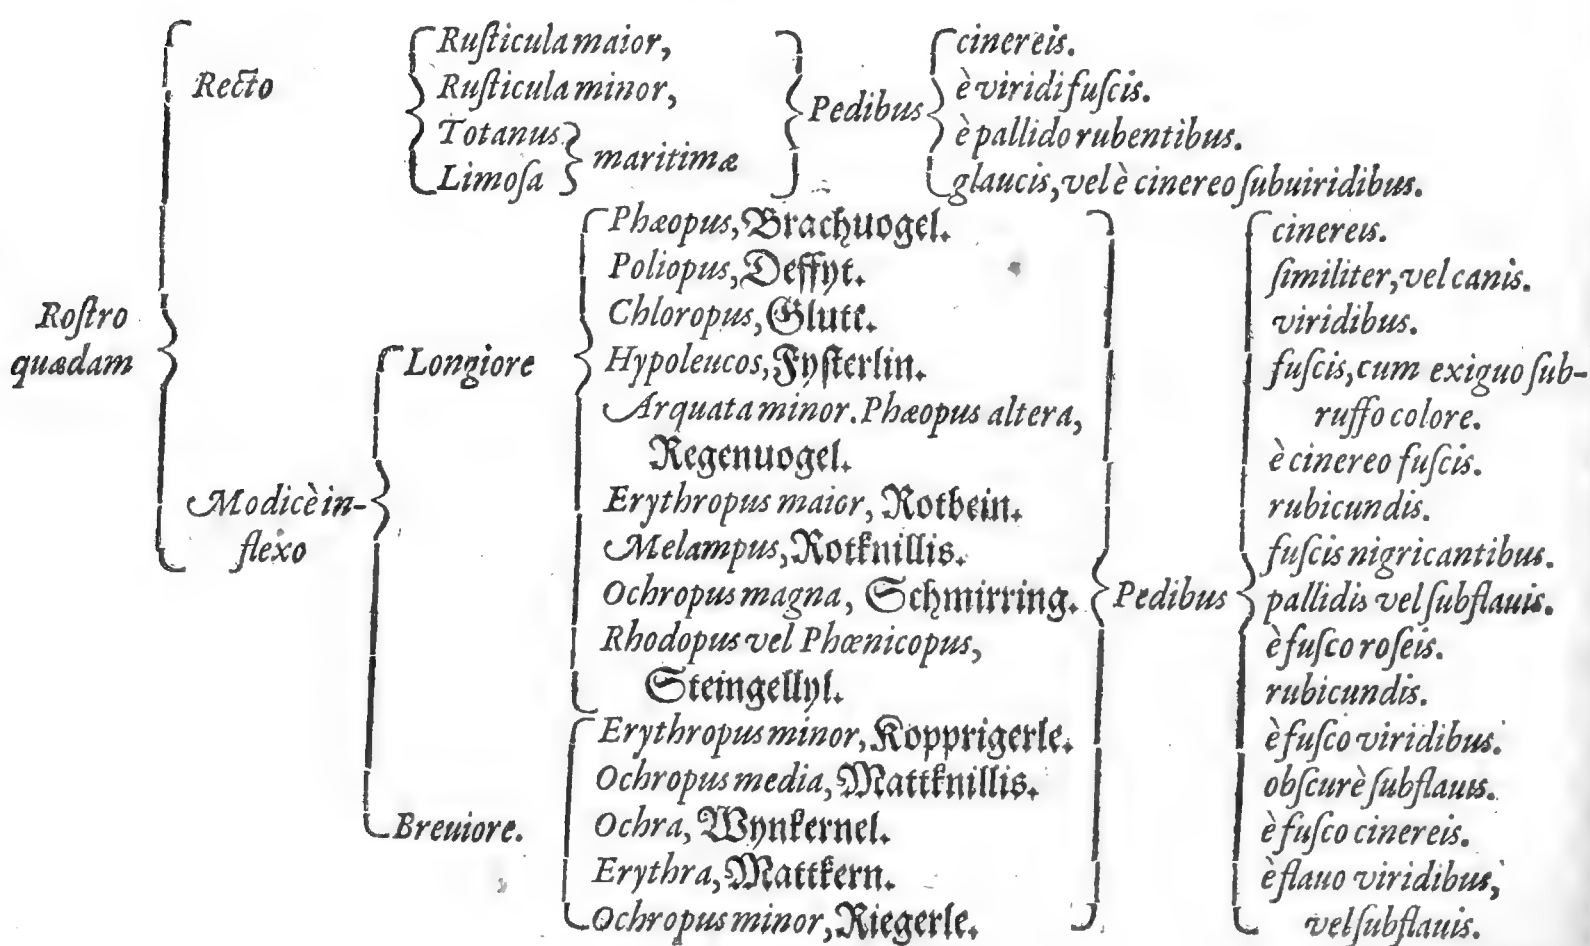 Roſtro
quædam
Recto
Ruſticula maior,
Ruſticula minor,
Totanus
Limoſa
maritimæ
Pedibus
cinereis.
è viridi fuſcis.
è pallido rubentibus.
glaucis, vel è cinereo ſubuiridibus.
Modicè in-
flexo
Longiore
Phæopus, Brachuogel.
Poliopus, Deffyt.
Chloropus, Glutt.
Hypoleucos, Fyſterlin.
Arquata minor. Phæopus altera,
Regenuogel.
Erythropus maior, Rotbein.
Melampus, Rotknillis.
Ochropus magna, Schmirring.
Rhodopus vel Phœnicopus,
Steingellyl.
Breuiore.
Erythropus minor, Kopprigerle.
Ochropus media, Mattknillis.
Ochra, Wynkernel.
Erythra, Mattkern.
Ochropus minor, Riegerle.
Pedibus
cinereis.
ſimiliter, vel canis.
viridibus.
fuſcis, cum exiguo ſub-
ruffo colore.
è cinereo fuſcis.
rubicundis.
fuſcis nigricantibus.
pallidis vel ſubflauis.
è fuſco roſeis.
rubicundis.
è fuſco viridibus.
obſcurè ſubflauis.
è fuſco cinereis.
è flauo viridibus,
vel ſubflauis.